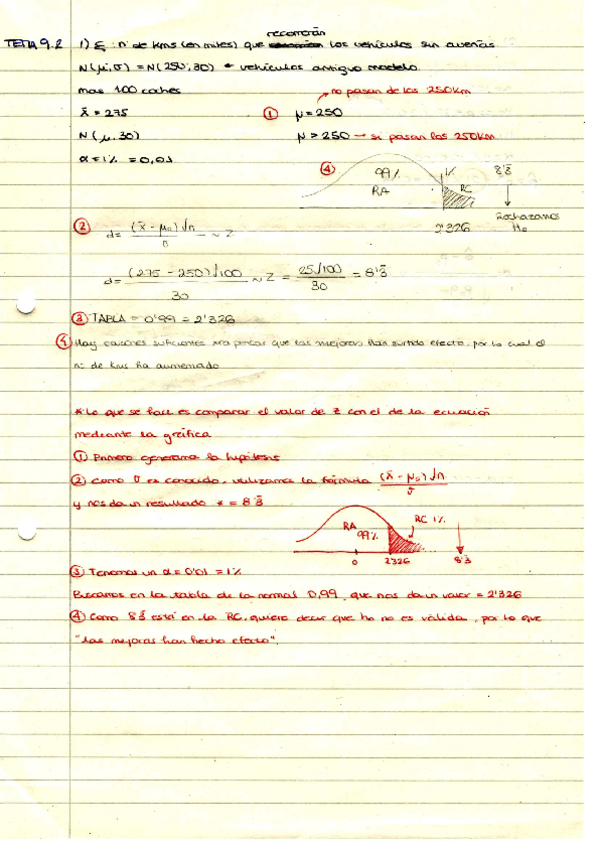 recorrerán
TEMA 9.2 1) ξ: nº de kms (en miles) que los vehículos sin averías
N(μ,σ) = N(250,30) → vehículos antiguo modelo.
mas 100 coches
no pasan de los 250km
x̄ = 275 ① μ = 250
N(μ,30) μ > 250 → si pasan los 250km
α = 1% = 0,01
④ 99% RA 1% RC 8'3̄
2'326 Rechazamos Ho
② d = (x̄ - μ₀)√n / σ ~ Z
d = (275 - 250)√100 / 30 ~ Z = 25√100 / 30 = 8'3̄
③ TABLA = 0'99 = 2'326
④ Hay razones suficientes para pensar que las mejoras han surtido efecto, por lo cual el
nº de kms ha aumentado
* Lo que se hace es comparar el valor de Z con el de la ecuación
mediante la gráfica
① Primero generamos la hipótesis
② Como σ es conocido, utilizamos la fórmula (x̄ - μ₀)√n / σ
y nos da un resultado * = 8'3̄
RA 99% RC 1%
0 2'326 8'3̄
③ Tenemos un α = 0'01 = 1%
Buscamos en la tabla de la normal 0,99, que nos da un valor = 2'326
④ Como 8'3̄ está en la RC, quiere decir que ho no es válida, por lo que
"las mejoras han hecho efecto".